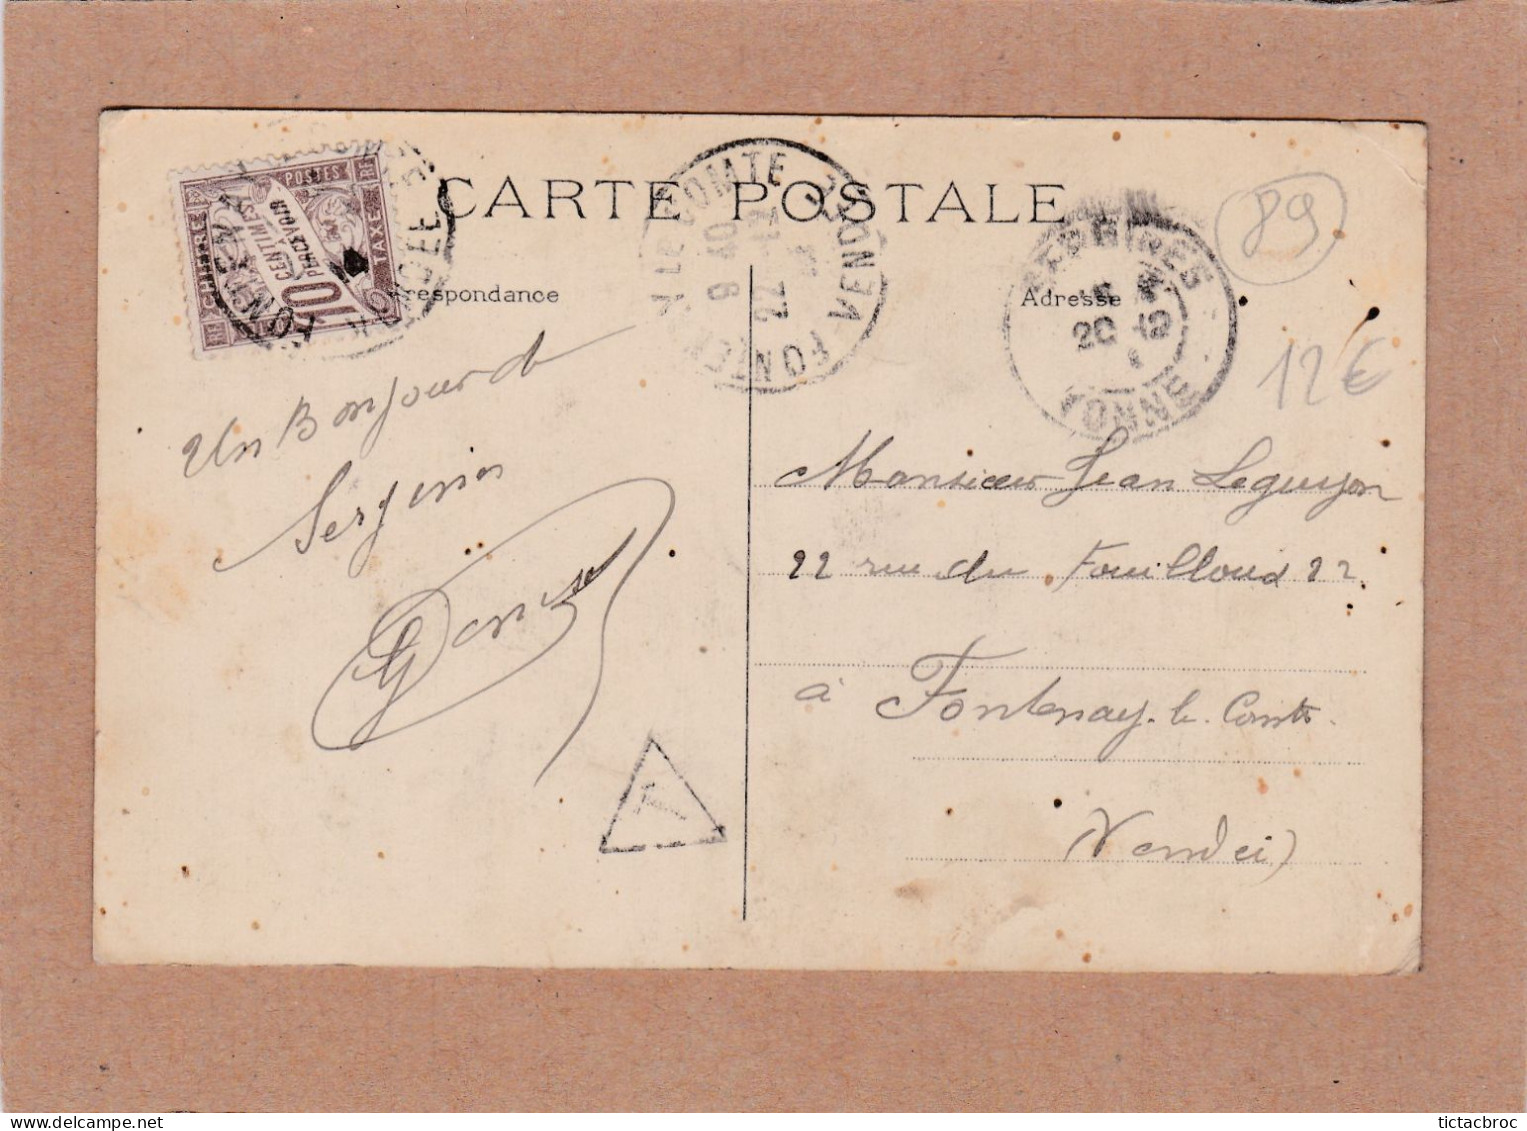 CARTE POSTALE
respondance
Adresse
CHIFFRE
POSTES
TAXE
RF
10
CENTIMES
A
PERCEVOIR
FONTENAY
VENDÉE
FONTENAY Le COMTE
VENDÉE
9 40
22 -12
YONNE
20 -12
89
12€
Un Bonjour de
Monsieur Jean Leguyon
22 rue du Fouilloud 22
à Fontenay-le-Comte
(Vendée)
Denise
T
tictacbroc